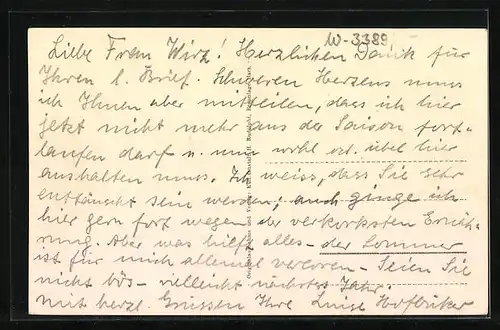 W-3389
Liebe Frau Wirz! Herzlichen Dank für
Ihren l. Brief. Schweren Herzens muss
ich Ihnen aber mitteilen, dass ich hier
jetzt nicht mehr aus der Saison fort-
laufen darf u. nun wohl od. übel hier
aushalten muss. Ich weiss, dass Sie sehr
enttäuscht sein werden; auch ginge ich
hier gern fort wegen der verkorksten Ernäh-
rung. Aber was hilft alles - der Sommer
ist für mich allemal verloren - Seien Sie
nicht bös - vielleicht nächstes Jahr.
mit herzl. Grüssen Ihre Luise